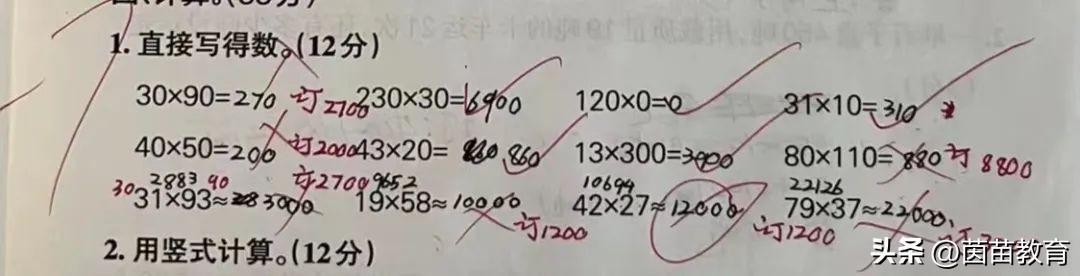 1. 直接写得数。(12分)
30×90=270 订2700 230×30=6900 120×0=0 31×10=310
40×50=200 订2000 43×20= 860 13×300=3900 80×110=880 订8800
2883 90 订2700 9652 10694 22126
30 31×93≈3000 19×58≈10000 42×27≈12000 79×37≈22000
订1200 订1200
2. 用竖式计算。(12分)
头条 @茵苗教育